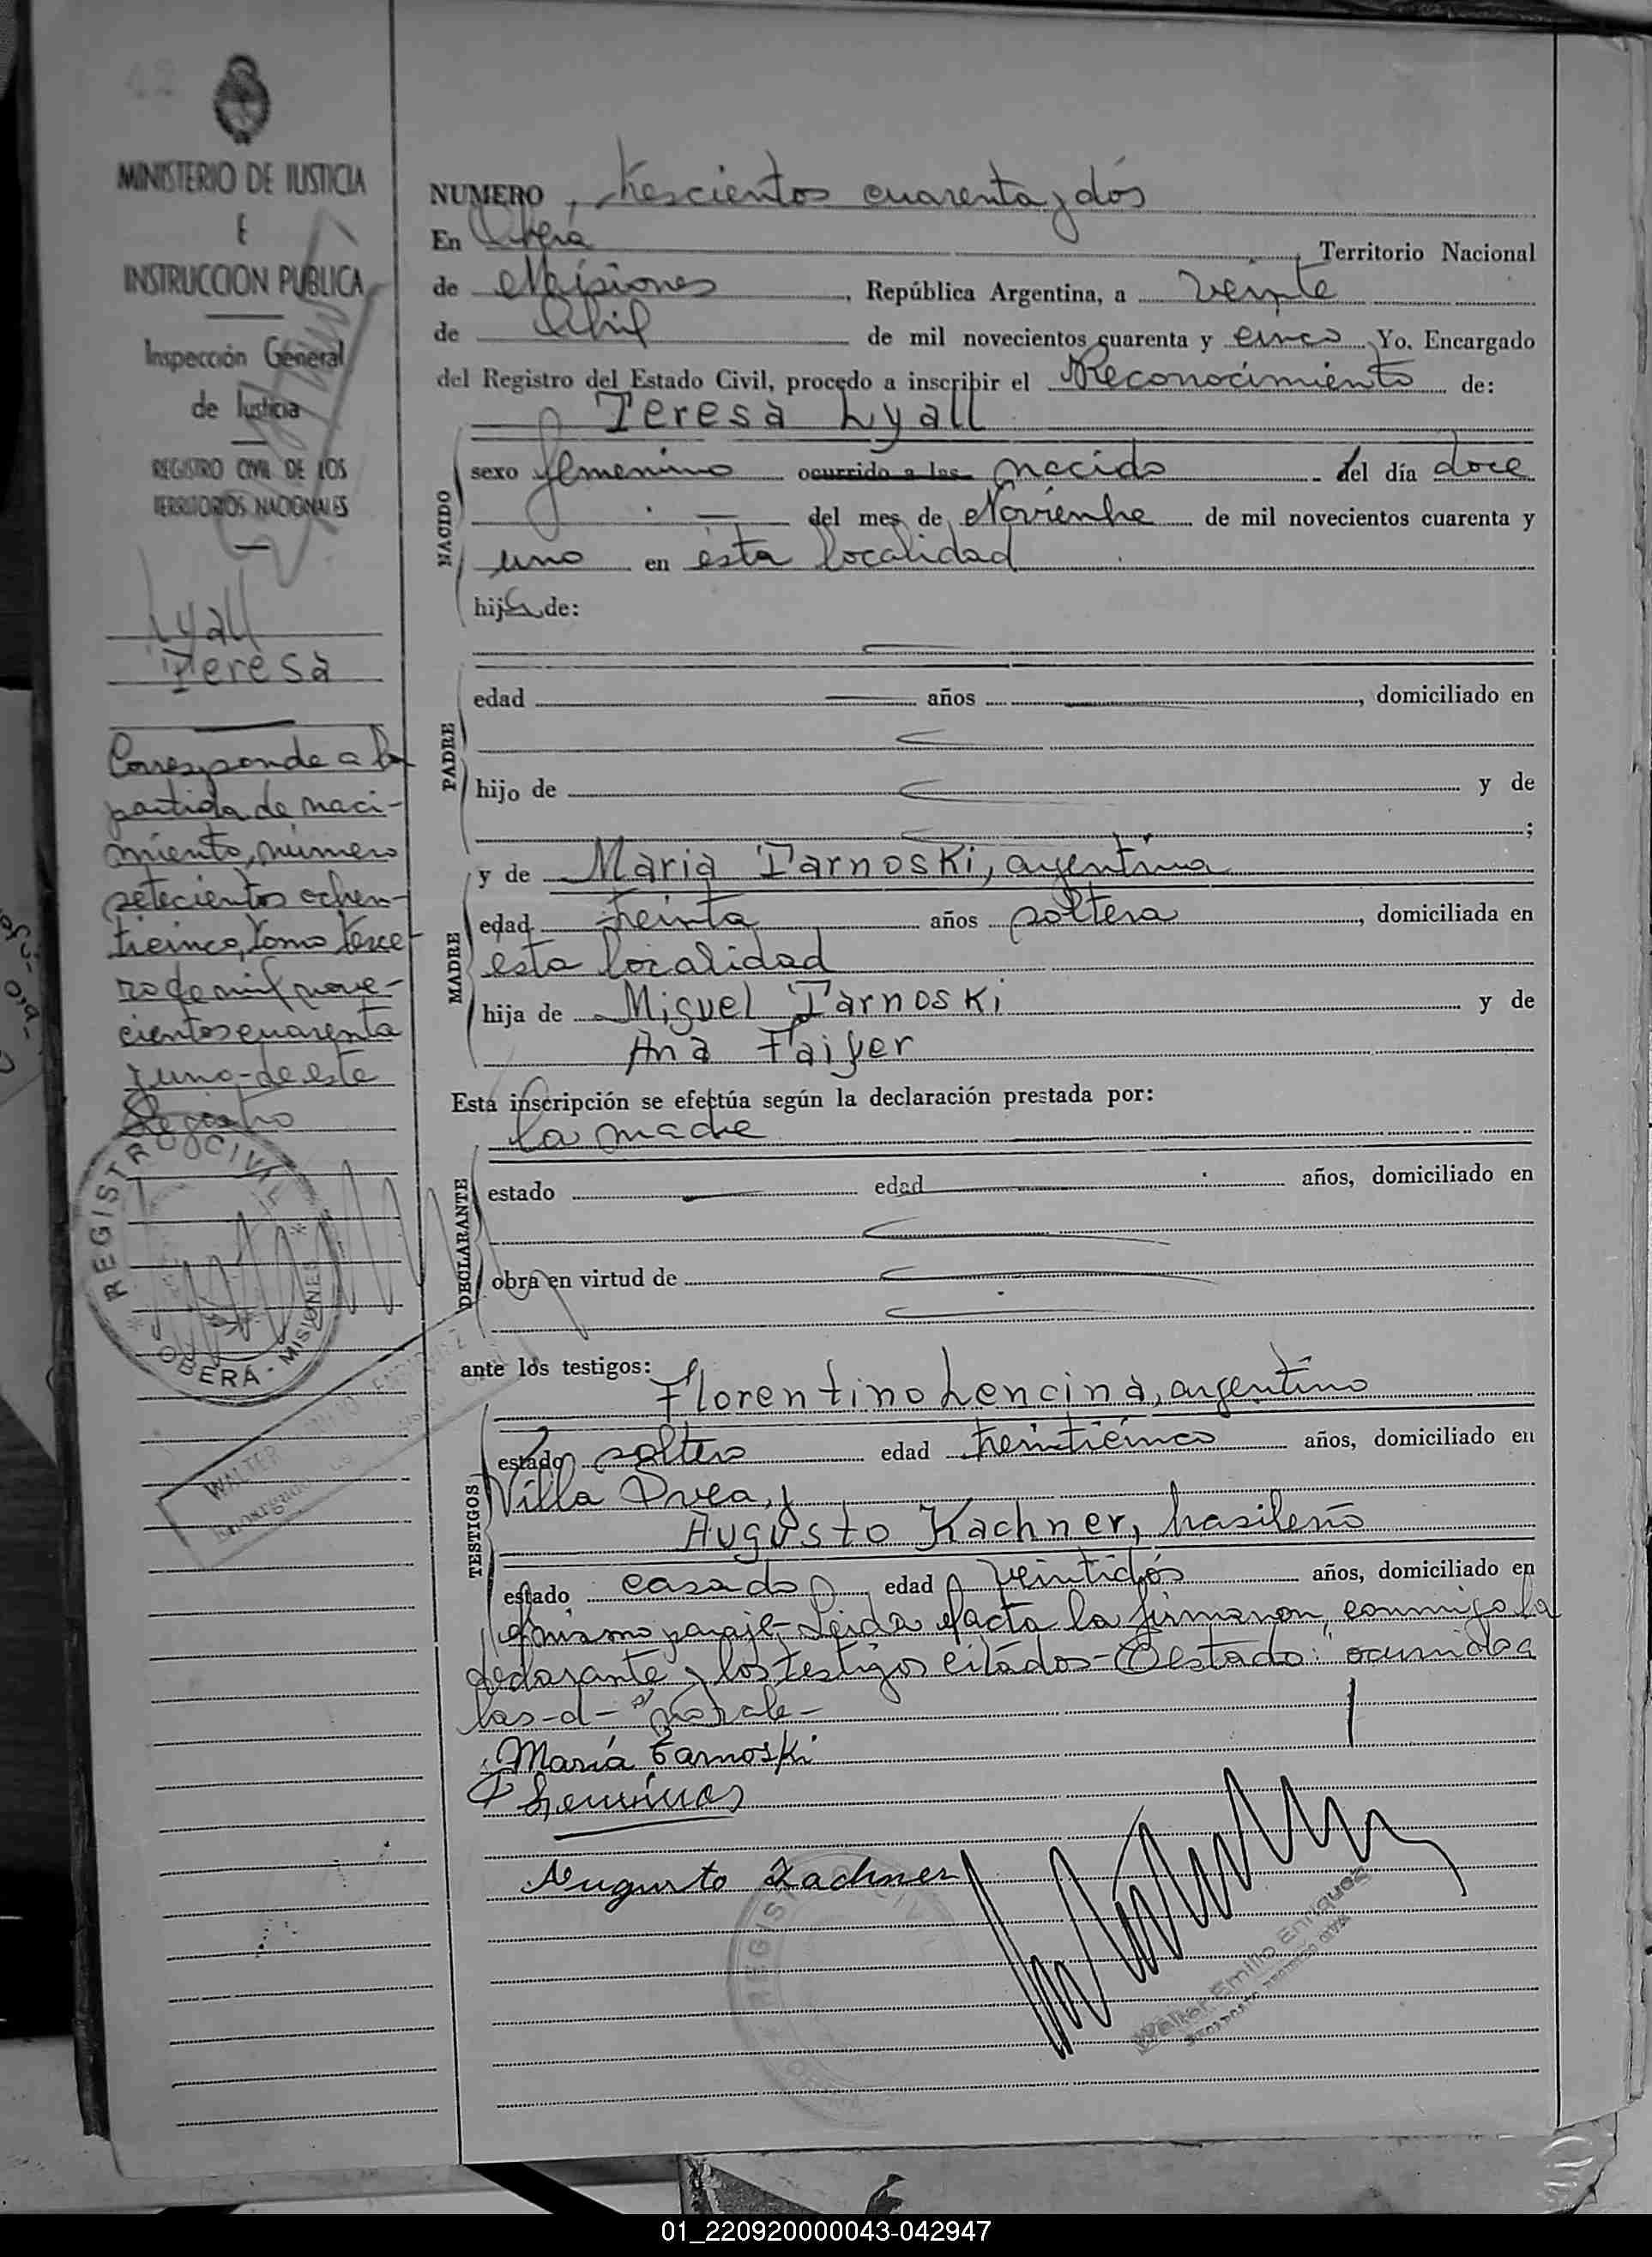 42
MINISTERIO DE JUSTICIA
E
INSTRUCCION PUBLICA
Inspección General
de Justicia
REGISTRO CIVIL DE LOS
TERRITORIOS NACIONALES
Lyall
Teresa
Corresponde a la
partida de naci-
miento, número
setecientos ochen-
ticinco, tomo terce-
ro de mil nove-
cientos cuarenta
y uno - de este
Registro
REGISTRO CIVIL
OBERA - MISIONES
WALTER
Encargado
NUMERO trescientos cuarenta y dós
En Oberá, Territorio Nacional
de Misiones, República Argentina, a veinte
de Abril de mil novecientos cuarenta y cinco Yo, Encargado
del Registro del Estado Civil, procedo a inscribir el Reconocimiento de:
Teresa Lyall
NACIDO
sexo femenino ocurrido a las nacido del día doce
del mes de Noviembre de mil novecientos cuarenta y
uno en ésta localidad
hija de:
PADRE
edad años, domiciliado en
hijo de y de
;
MADRE
y de Maria Tarnoski, argentina
edad treinta años soltera, domiciliada en
esta localidad
hija de Miguel Tarnoski y de
Ana Faifer
Esta inscripción se efectúa según la declaración prestada por:
la madre
DECLARANTE
estado edad años, domiciliado en
obra en virtud de
ante los testigos:
TESTIGOS
Florentino Lencina, argentino
estado soltero edad treinticinco años, domiciliado en
Villa Svea, y
Augusto Kachner, brasileño
estado casado edad veintidós años, domiciliado en
el mismo paraje - Leida el acta la firmaron conmigo la
declarante y los testigos citados - Testado: "ocurrido a
las - d - " no vale -
María Tarnoski
Augusto Kachner
REGISTRO CIVIL
Walter Emilio Enriquez
ENCARGADO REGISTRO CIVIL
01_220920000043-042947